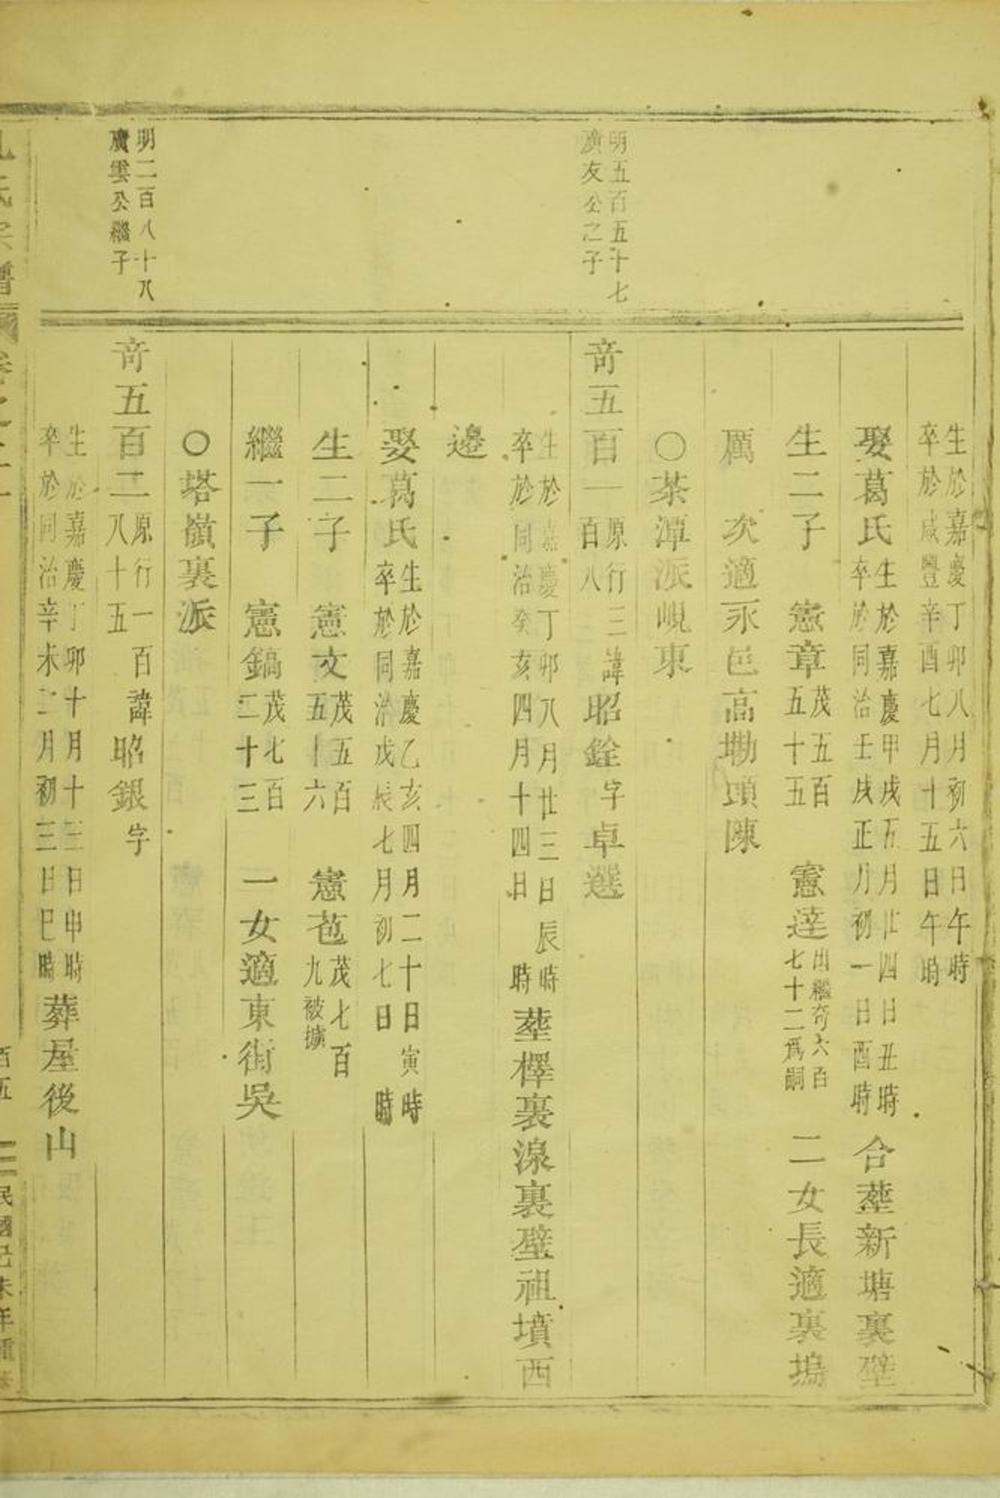 生於嘉慶丁卯八月初六日午時
卒於咸豐辛酉七月十五日午時
娶葛氏
生於嘉慶甲戌五月廿四日丑時
卒於同治壬戌正月初一日酉時
合塟新塘裏壁
生二子 憲章
茂五百
五十五
憲達
出繼奇六百
七十二爲嗣
二女長適裏塢
厲 次適永邑高墈頭陳
○茶潭派峴東
明五百五十七
廣友公之子
奇五百一
原行三
百八
諱昭銓字卓選
生於嘉慶丁卯八月廿三日辰時
卒於同治癸亥四月十四日時
塟檡裏湶裏壁祖墳西
邉
娶葛氏
生於嘉慶乙亥四月二十日寅時
卒於同治戊辰七月初七日時
生二子 憲文
茂五百
五十六
憲苞
茂七百
九被擄
繼一子 憲鎬
茂七百
二十三
一女適東街吳
○塔嶺裏派
明二百八十八
廣雲公繼子
奇五百二
原行一百
八十五
諱昭銀字
生於嘉慶丁卯十月十三日申時
卒於同治辛未二月初三日巳時
葬屋後山
孔氏宗譜
百五
民國己未年重修